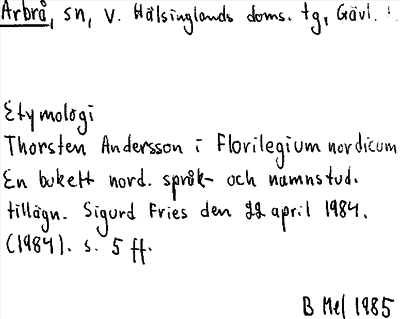 Arbrå, sn, V. Hälsinglands doms. tg, Gävl. l.
Etymologi
Thorsten Andersson i Florilegium nordicum
En bukett nord. språk- och namnstud.
tillägn. Sigurd Fries den 22 april 1984.
(1984). s. 5 ff.
B Mel 1985